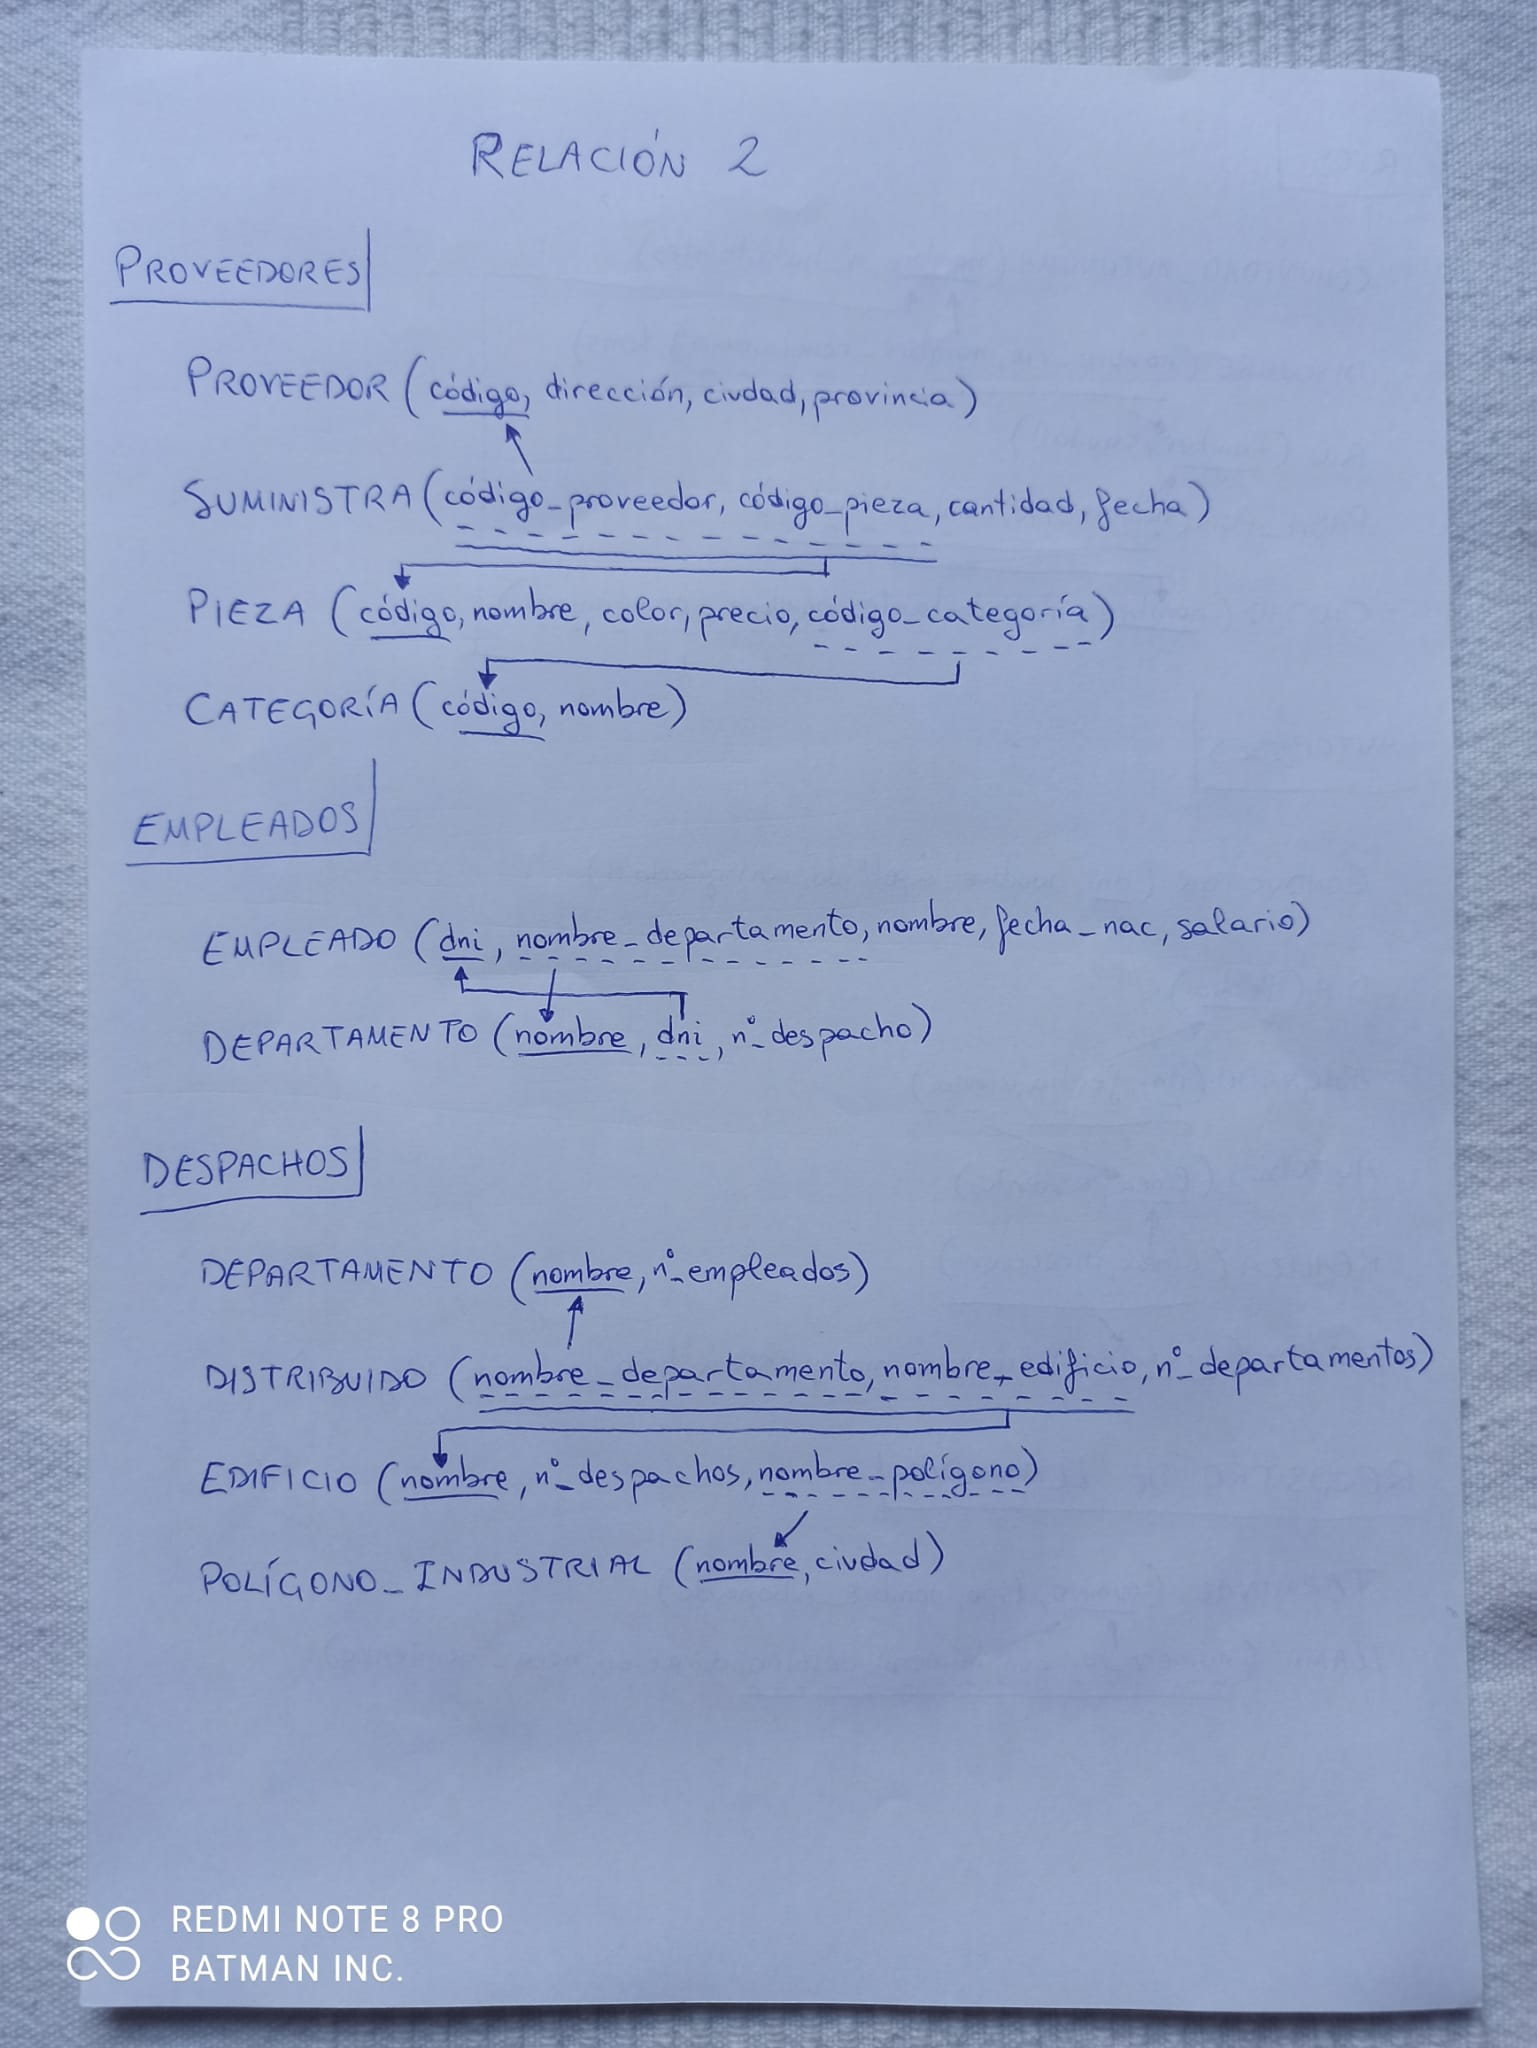 RELACIÓN 2
PROVEEDORES
PROVEEDOR (código, dirección, ciudad, provincia)
SUMINISTRA (código_proveedor, código_pieza, cantidad, fecha)
PIEZA (código, nombre, color, precio, código_categoría)
CATEGORÍA (código, nombre)
EMPLEADOS
EMPLEADO (dni, nombre_departamento, nombre, fecha_nac, salario)
DEPARTAMENTO (nombre, dni, nº_despacho)
DESPACHOS
DEPARTAMENTO (nombre, nº_empleados)
DISTRIBUIDO (nombre_departamento, nombre_edificio, nº_departamentos)
EDIFICIO (nombre, nº_despachos, nombre_polígono)
POLÍGONO_INDUSTRIAL (nombre, ciudad)
REDMI NOTE 8 PRO
BATMAN INC.